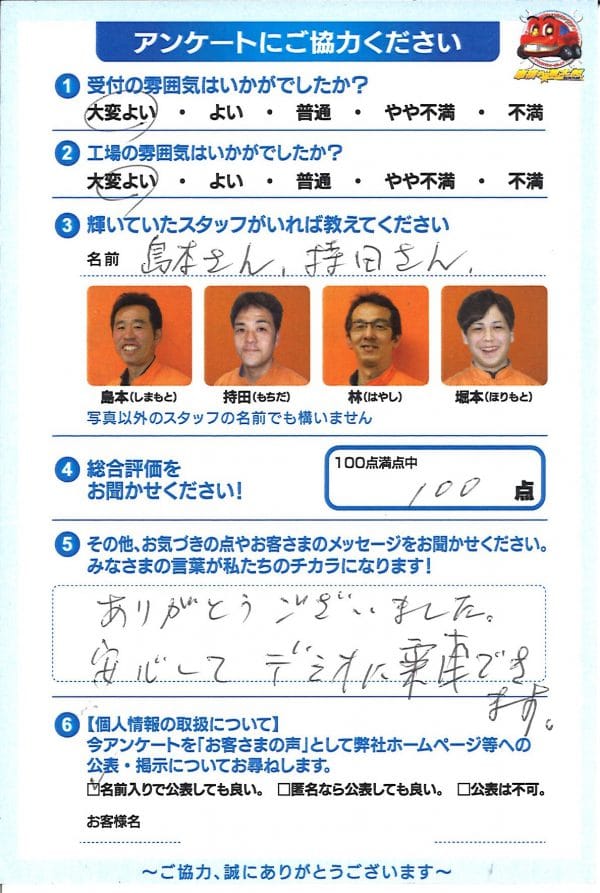 アンケートにご協力ください
1 受付の雰囲気はいかがでしたか?
大変よい ・ よい ・ 普通 ・ やや不満 ・ 不満
2 工場の雰囲気はいかがでしたか?
大変よい ・ よい ・ 普通 ・ やや不満 ・ 不満
3 輝いていたスタッフがいれば教えてください
名前 島本さん、持田さん、
島本(しまもと) 持田(もちだ) 林(はやし) 堀本(ほりもと)
写真以外のスタッフの名前でも構いません
4 総合評価を
お聞かせください!
100点満点中
100 点
5 その他、お気づきの点やお客さまのメッセージをお聞かせください。
みなさまの言葉が私たちのチカラになります!
ありがとうございました。
安心して デミオに乗車でき
ます。
6 【個人情報の取扱について】
今アンケートを「お客さまの声」として弊社ホームページ等への
公表・掲示についてお尋ねします。
□名前入りで公表しても良い。 □匿名なら公表しても良い。 □公表は不可。
お客様名
～ご協力、誠にありがとうございます～